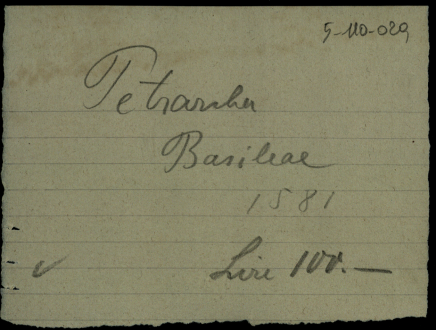 5-110-029
Petrarcha
Basileae
1581
Lire 100.—